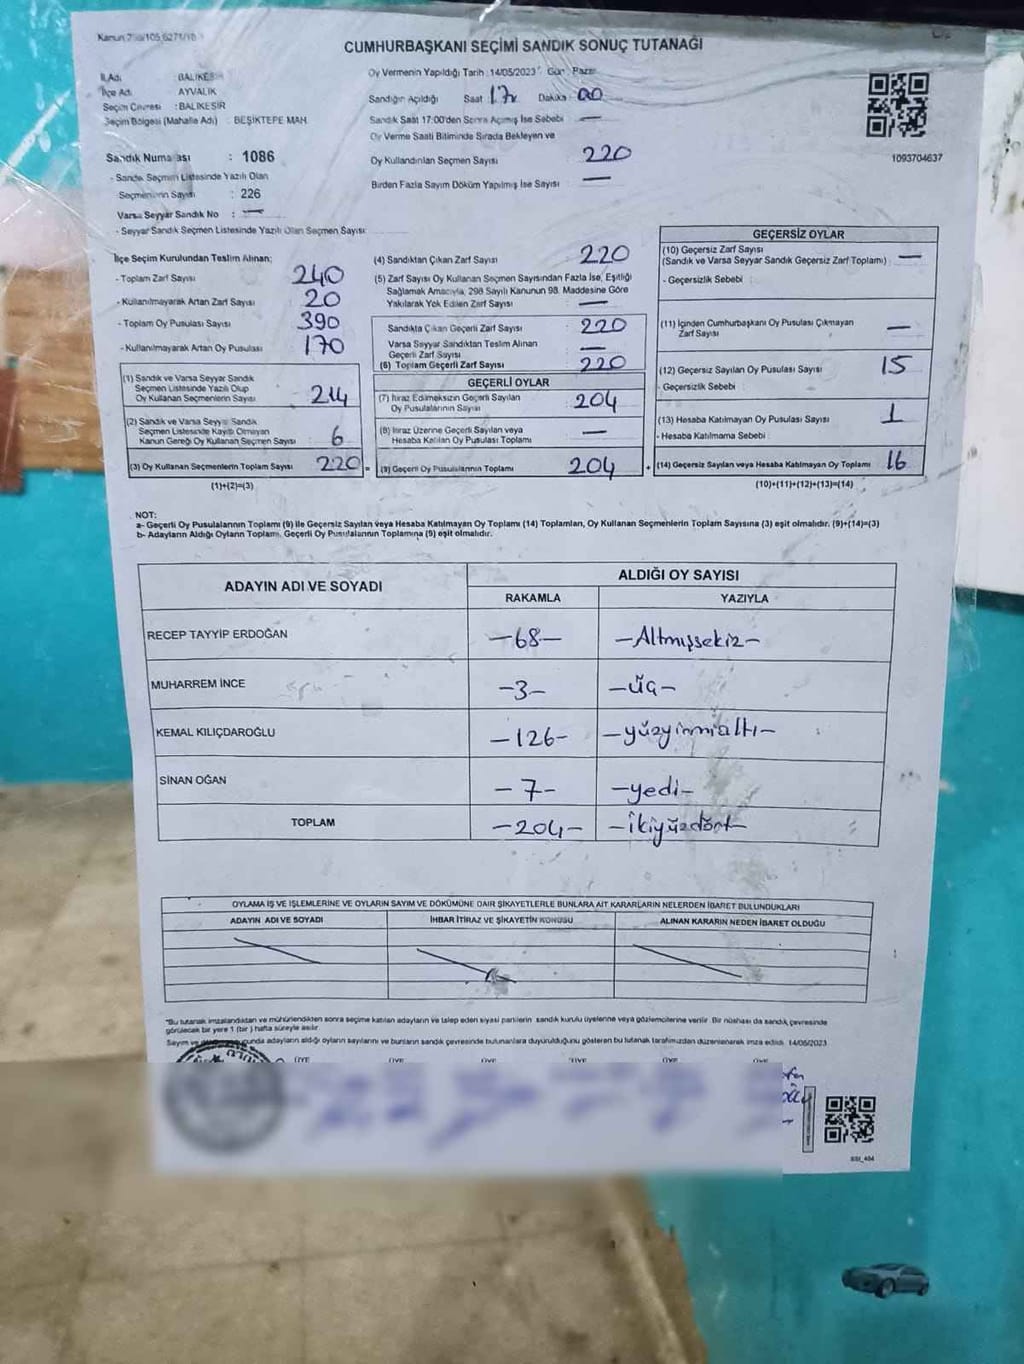 CUMHURBAŞKANI SEÇİMİ SANDIK SONUÇ TUTANAĞI
İl Adı : BALIKESİR
İlçe Adı : AYVALIK
Seçim Çevresi : BALIKESİR
Seçim Bölgesi (Mahalle Adı) : BEŞİKTEPE MAH.
Sandık Numarası : 1086
- Sandık Seçmen Listesinde Yazılı Olan
Seçmenlerin Sayısı : 226
Varsa Seyyar Sandık No : —
- Seyyar Sandık Seçmen Listesinde Yazılı Olan Seçmen Sayısı:
Oy Vermenin Yapıldığı Tarih : 14/05/2023 Gün : Pazar
Sandığın Açıldığı Saat : 17 Dakika : 00
Sandık Saat 17:00'den Sonra Açılmış İse Sebebi : —
Oy Verme Saati Bitiminde Sırada Bekleyen ve
Oy Kullandırılan Seçmen Sayısı : 220
Birden Fazla Sayım Döküm Yapılmış İse Sayısı : —
1093704637
İlçe Seçim Kurulundan Teslim Alınan:
- Toplam Zarf Sayısı : 240
- Kullanılmayarak Artan Zarf Sayısı : 20
- Toplam Oy Pusulası Sayısı : 390
- Kullanılmayarak Artan Oy Pusulası : 170
(1) Sandık ve Varsa Seyyar Sandık
Seçmen Listesinde Yazılı Olup
Oy Kullanan Seçmenlerin Sayısı : 214
(2) Sandık ve Varsa Seyyar Sandık
Seçmen Listesinde Kayıtlı Olmayan
Kanun Gereği Oy Kullanan Seçmen Sayısı : 6
(3) Oy Kullanan Seçmenlerin Toplam Sayısı : 220 =
(1)+(2)=(3)
(4) Sandıktan Çıkan Zarf Sayısı : 220
(5) Zarf Sayısı Oy Kullanan Seçmen Sayısından Fazla İse, Eşitliği
Sağlamak Amacıyla, 298 Sayılı Kanunun 98. Maddesine Göre
Yakılarak Yok Edilen Zarf Sayısı : —
Sandıkta Çıkan Geçerli Zarf Sayısı : 220
Varsa Seyyar Sandıktan Teslim Alınan
Geçerli Zarf Sayısı : —
(6) Toplam Geçerli Zarf Sayısı : 220
GEÇERLİ OYLAR
(7) İtiraz Edilmeksizin Geçerli Sayılan
Oy Pusulalarının Sayısı : 204
(8) İtiraz Üzerine Geçerli Sayılan veya
Hesaba Katılan Oy Pusulası Toplamı : —
(9) Geçerli Oy Pusulalarının Toplamı : 204 +
GEÇERSİZ OYLAR
(10) Geçersiz Zarf Sayısı
(Sandık ve Varsa Seyyar Sandık Geçersiz Zarf Toplamı) : —
- Geçersizlik Sebebi :
(11) İçinden Cumhurbaşkanı Oy Pusulası Çıkmayan
Zarf Sayısı : —
(12) Geçersiz Sayılan Oy Pusulası Sayısı : 15
- Geçersizlik Sebebi :
(13) Hesaba Katılmayan Oy Pusulası Sayısı : 1
- Hesaba Katılmama Sebebi :
(14) Geçersiz Sayılan veya Hesaba Katılmayan Oy Toplamı : 16
(10)+(11)+(12)+(13)=(14)
NOT:
a- Geçerli Oy Pusulalarının Toplamı (9) ile Geçersiz Sayılan veya Hesaba Katılmayan Oy Toplamı (14) Toplamları, Oy Kullanan Seçmenlerin Toplam Sayısına (3) eşit olmalıdır. (9)+(14)=(3)
b- Adayların Aldığı Oyların Toplamı, Geçerli Oy Pusulalarının Toplamına (9) eşit olmalıdır.
ADAYIN ADI VE SOYADI
ALDIĞI OY SAYISI
RAKAMLA YAZIYLA
RECEP TAYYİP ERDOĞAN -68- -Altmışsekiz-
MUHARREM İNCE -3- -üç-
KEMAL KILIÇDAROĞLU -126- -yüzyirmialtı-
SİNAN OĞAN -7- -yedi-
TOPLAM -204- -ikiyüzdört-
OYLAMA İŞ VE İŞLEMLERİNE VE OYLARIN SAYIM VE DÖKÜMÜNE DAİR ŞİKAYETLERLE BUNLARA AİT KARARLARIN NELERDEN İBARET BULUNDUKLARI
ADAYIN ADI VE SOYADI İHBAR İTİRAZ VE ŞİKAYETİN KONUSU ALINAN KARARIN NEDEN İBARET OLDUĞU
"Bu tutanak imzalandıktan ve mühürlendikten sonra seçime katılan adayların ve talep eden siyasi partilerin sandık kurulu üyelerine veya gözlemcilerine verilir. Bir nüshası da sandık çevresinde
görülecek bir yere 1 (bir) hafta süreyle asılır.
Sayım ve adayların aldığı oyların sayılarını ve bunların sandık çevresinde bulunanlara duyurulduğunu gösteren bu tutanak tarafımızdan düzenlenerek imza edildi. 14/05/2023
ÜYE ÜYE ÜYE ÜYE ÜYE ÜYE